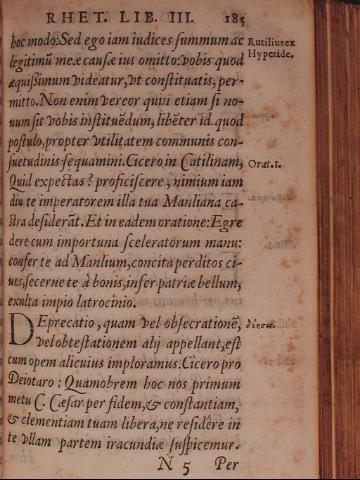 RHET. LIB. III. 185
hoc modo: Sed ego iam iudices summum ac
legitimũ meæ causæ ius omitto: vobis quod
æquissimum videatur, vt constituatis, per-
mitto. Non enim vereor quin etiam si no-
uum sit vobis instituẽdum, libẽter id quod
postulo, propter vtilitatem communis con-
suetudinis sequamini. Cicero in Catilinam,
Quid expectas? proficiscere, nimium iam
diu te imperatorem illa tua Manliana ca-
stra desiderãt. Et in eadem oratione: Egre
dere cum importuna sceleratorum manu:
confer te ad Manlium, concita perditos ci-
ues, secerne te à bonis, infer patriæ bellum,
exulta impio latrocinio.
DEprecatio, quam vel obsecrationẽ,
vel obtestationem alij appellant, est
cum opem alicuius imploramus. Cicero pro
Deiotaro: Quamobrem hoc nos primum
metu C. Cæsar per fidem, & constantiam,
& clementiam tuam libera, ne residẽre in
te vllam partem iracundiæ suspicemur.
N 5 Per
Rutilius ex
Hyperide.
Orat. 1.
δέησις.